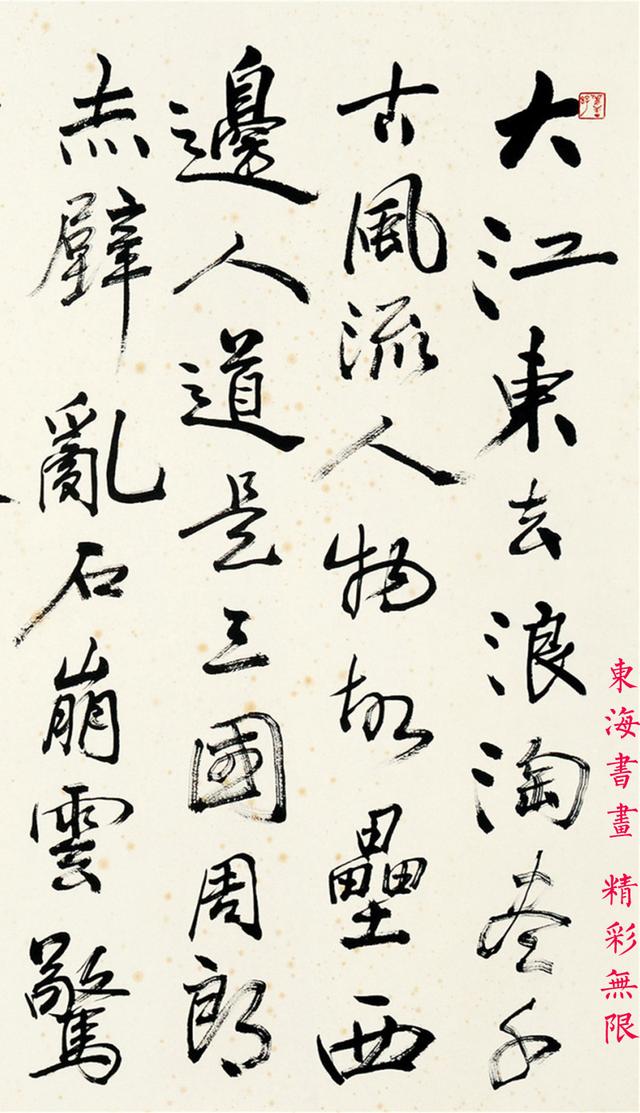 大江東去浪淘盡千
古風流人物故壘西
邊人道是三國周郎
赤壁亂石崩雲驚
東海書畫 精彩無限